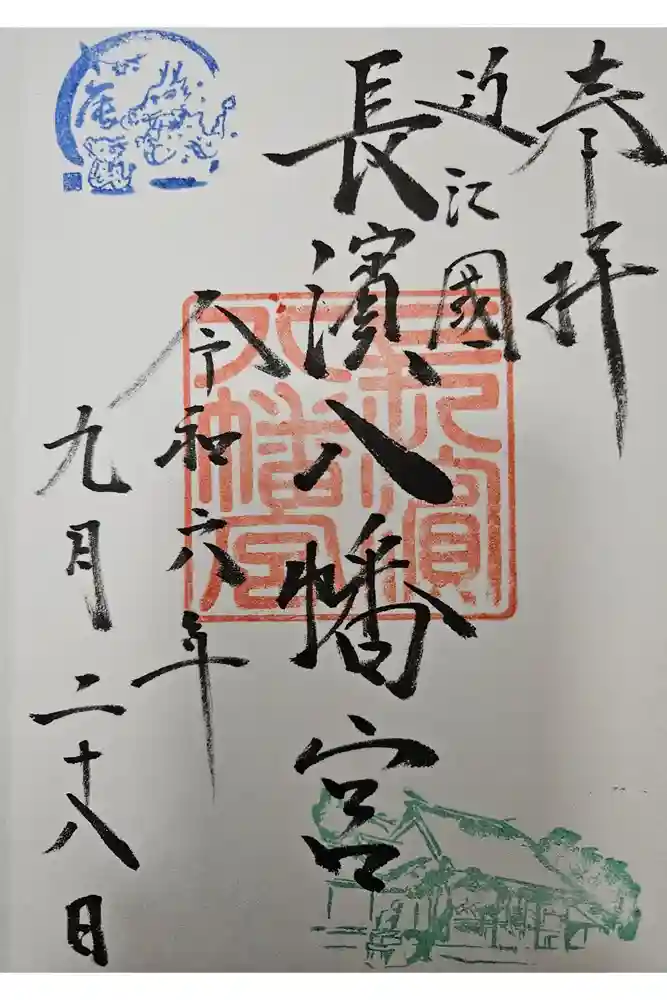 奉拝
近江國
長濱八幡宮
長濱
八幡宮
令和六年
九月二十八日
辰